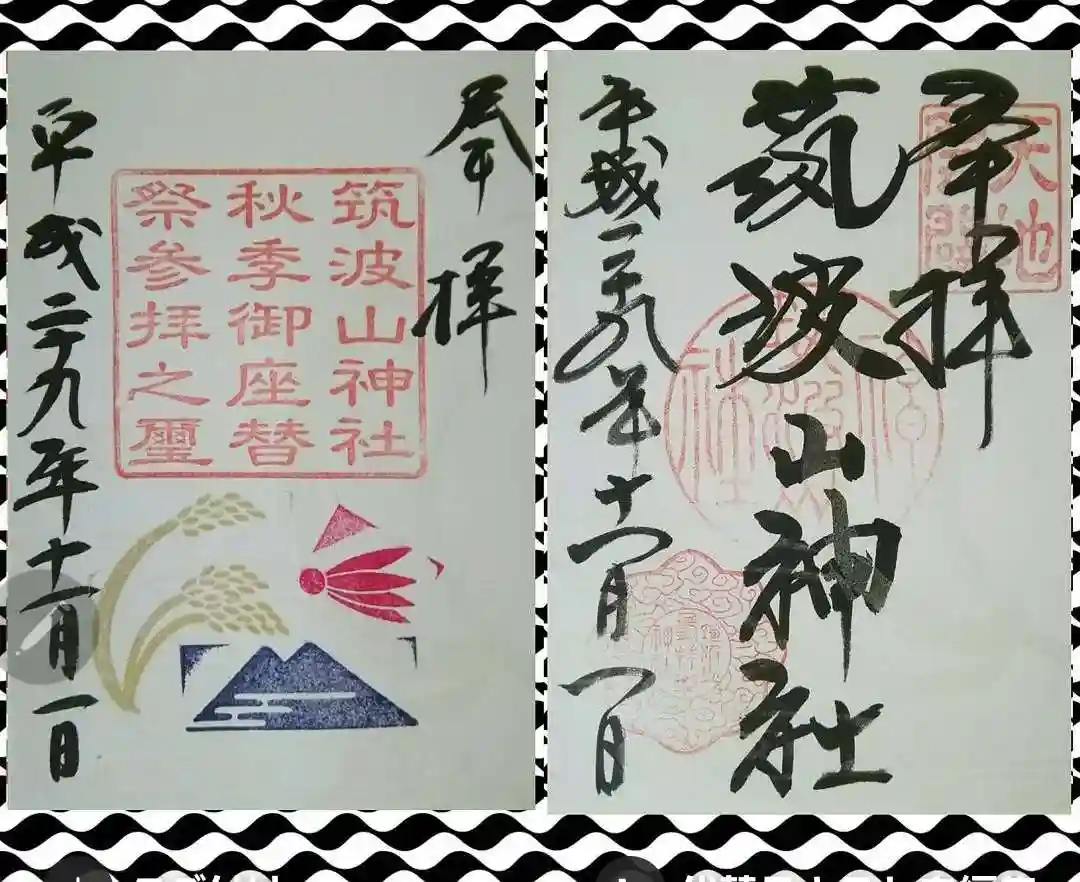 奉拝
筑波山神社
秋季御座替
祭参拝之璽
平成二十九年十一月一日
奉拝
天地
開闢
筑波山神社
平成二十九年十一月一日